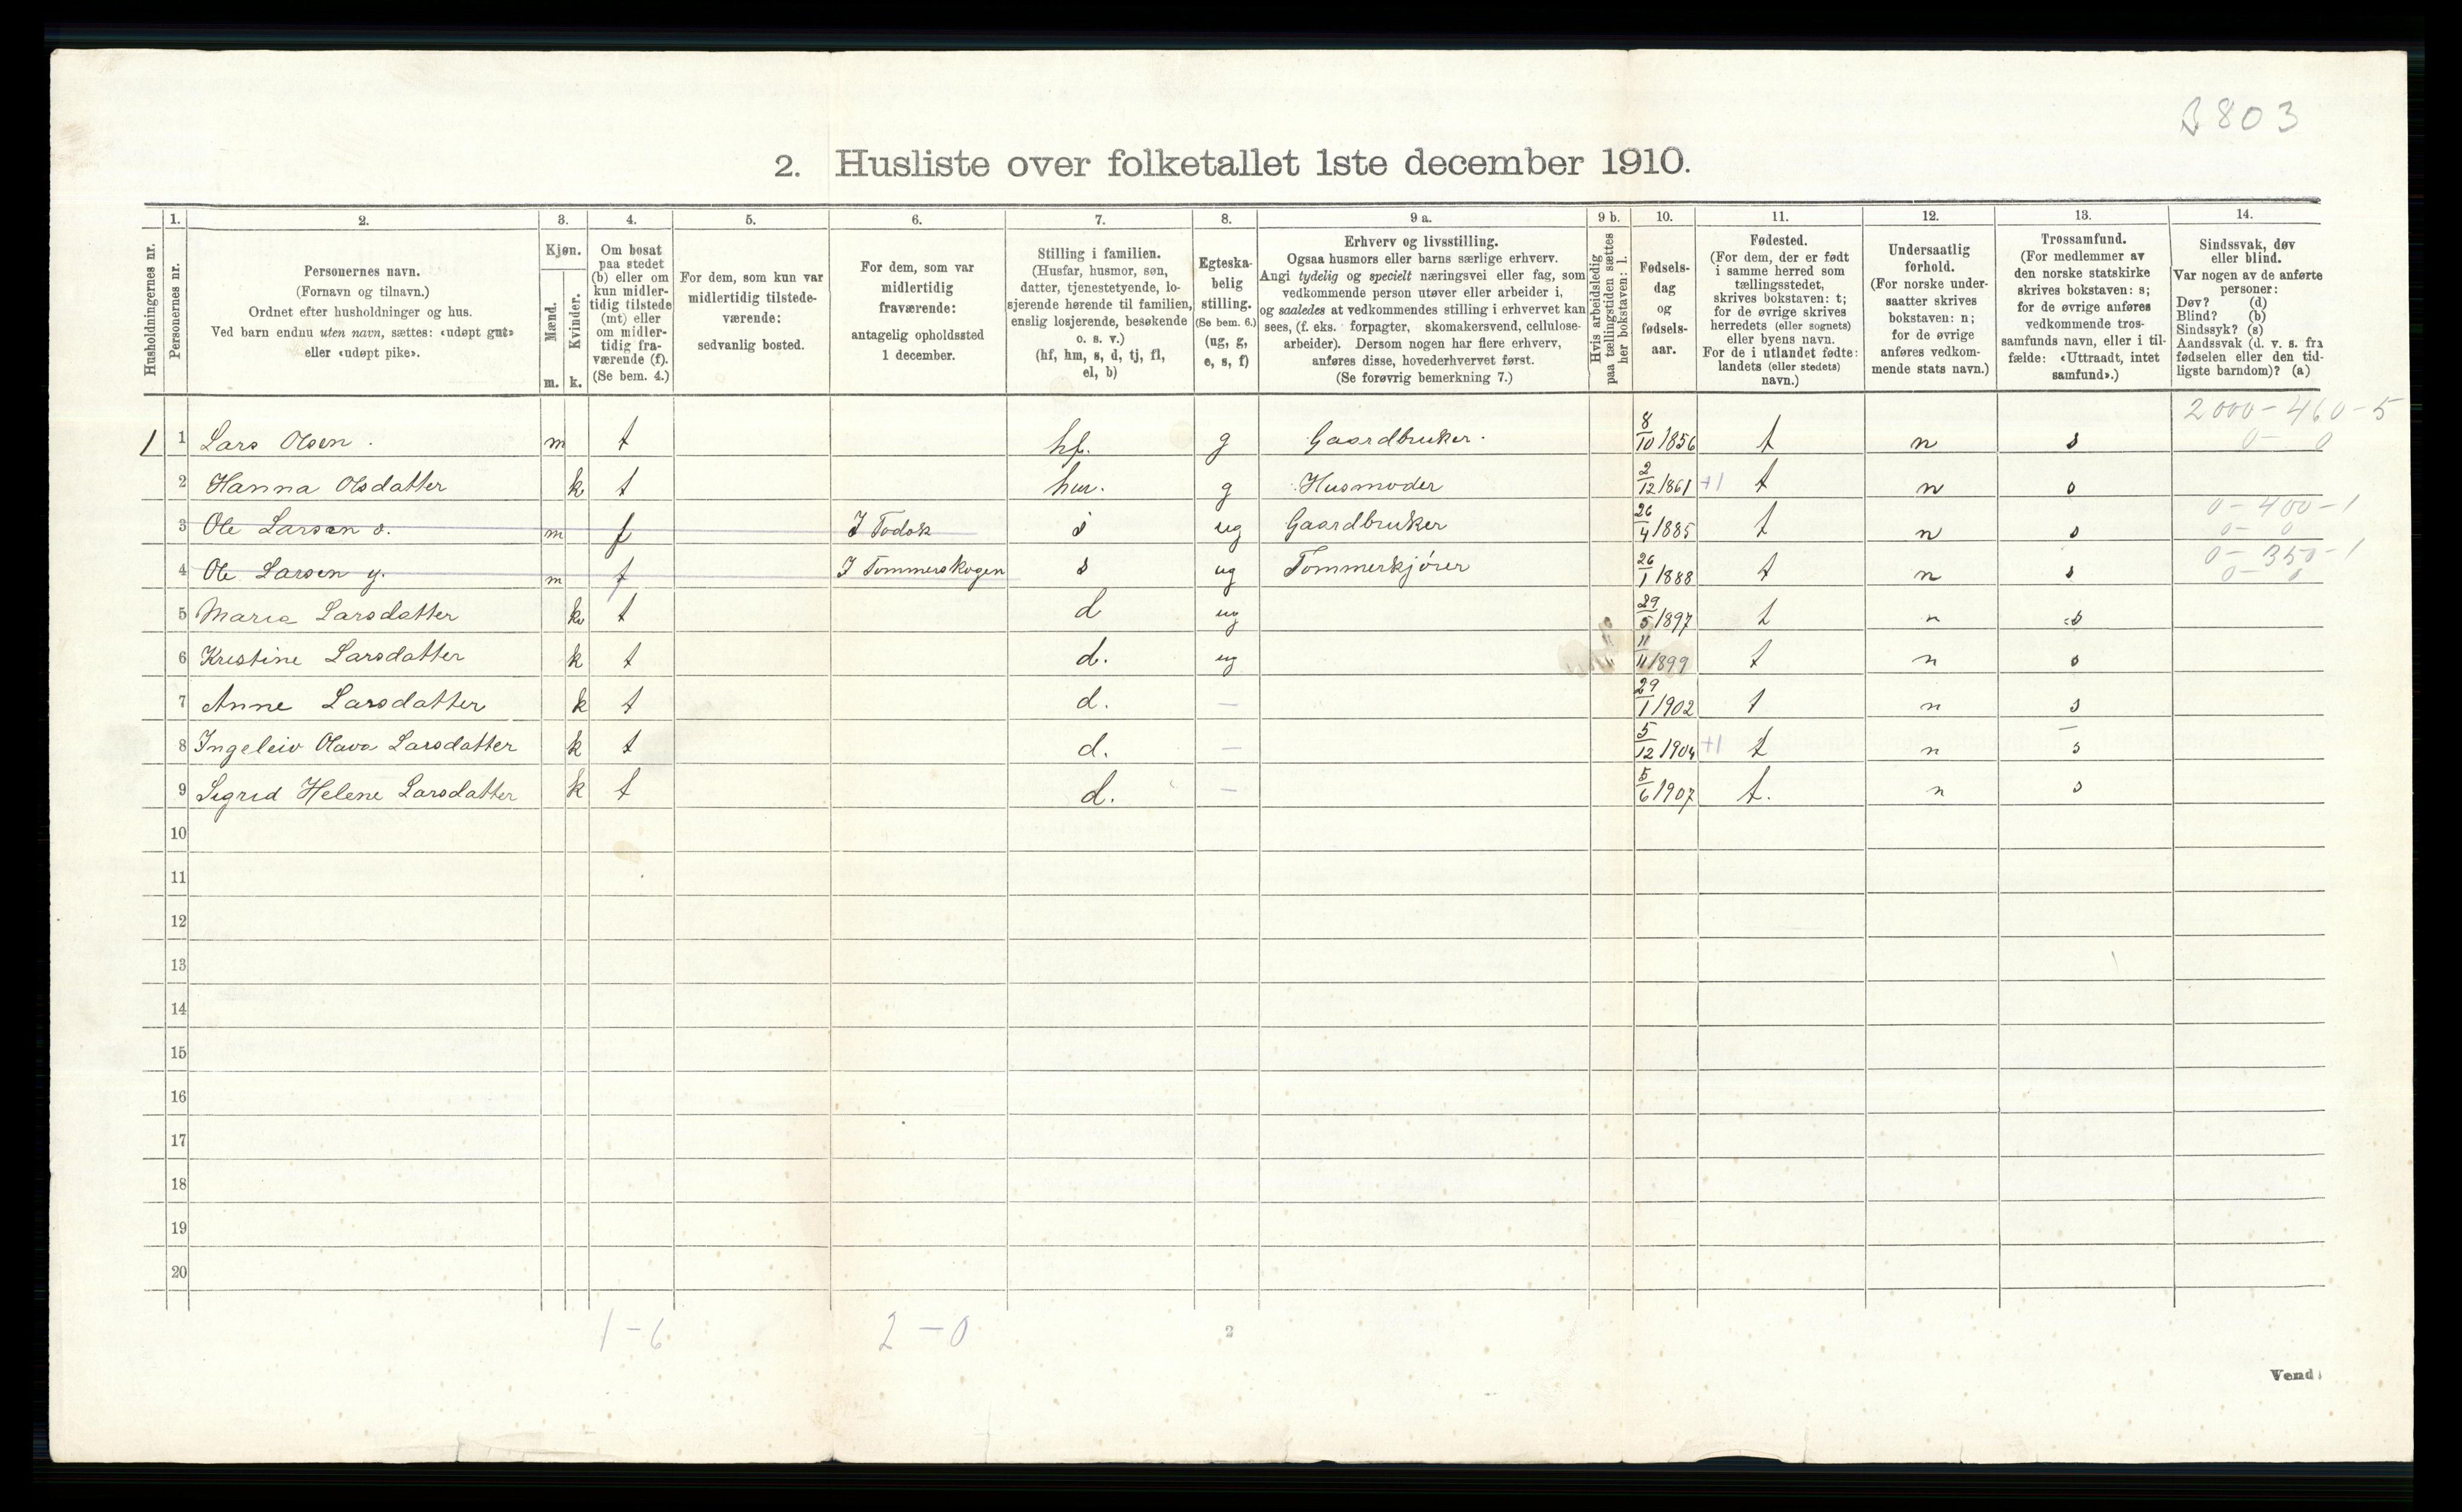 B803
2. Husliste over folketallet 1ste december 1910.
1. 2. 3. 4. 5. 6. 7. 8. 9 a. 9 b. 10. 11. 12. 13. 14.
Husholdningernes nr.
Personernes nr.
Personernes navn.
(Fornavn og tilnavn.)
Ordnet efter husholdninger og hus.
Ved barn endnu uten navn, sættes: «udøpt gut»
eller «udøpt pike».
Kjøn.
Mænd.
Kvinder.
m. k.
Om bosat
paa stedet
(b) eller om
kun midler-
tidig tilstede
(mt) eller
om midler-
tidig fra-
værende (f).
(Se bem. 4.)
For dem, som kun var
midlertidig tilstede-
værende:
sedvanlig bosted.
For dem, som var
midlertidig
fraværende:
antagelig opholdssted
1 december.
Stilling i familien.
(Husfar, husmor, søn,
datter, tjenestetyende, lo-
sjerende hørende til familien,
enslig losjerende, besøkende
o. s. v.)
(hf, hm, s, d, tj, fl,
el, b)
Egteska-
belig
stilling.
(Se bem. 6.)
(ug, g,
e, s, f)
Erhverv og livsstilling.
Ogsaa husmors eller barns særlige erhverv.
Angi tydelig og specielt næringsvei eller fag, som
vedkommende person utøver eller arbeider i,
og saaledes at vedkommendes stilling i erhvervet kan
sees, (f. eks. forpagter, skomakersvend, cellulose-
arbeider). Dersom nogen har flere erhverv,
anføres disse, hovederhvervet først.
(Se forøvrig bemerkning 7.)
Hvis arbeidsledig
paa tællingstiden sættes
her bokstaven: l.
Fødsels-
dag
og
fødsels-
aar.
Fødested.
(For dem, der er født
i samme herred som
tællingsstedet,
skrives bokstaven: t;
for de øvrige skrives
herredets (eller sognets)
eller byens navn.
For de i utlandet fødte:
landets (eller stedets)
navn.)
Undersaatlig
forhold.
(For norske under-
saatter skrives
bokstaven: n;
for de øvrige
anføres vedkom-
mende stats navn.)
Trossamfund.
(For medlemmer av
den norske statskirke
skrives bokstaven: s;
for de øvrige anføres
vedkommende tros-
samfunds navn, eller i til-
fælde: «Uttraadt, intet
samfund».)
Sindssvak, døv
eller blind.
Var nogen av de anførte
personer:
Døv? (d)
Blind? (b)
Sindssyk? (s)
Aandssvak (d. v. s. fra
fødselen eller den tid-
ligste barndom)? (a)
2000-460-5
1 1 Lars Olsen. m t hf. g Gaardbruker. 8/10 1856 t n s 0- 0
2 Hanna Olsdatter k t hm. g Husmoder 2/12 1861 +1 t n s
0-400-1
3 Ole Larsen o. m f s ug Gaardbruker 26/4 1885 t n s 0- 0
4 Ole Larsen y. m f I Tømmerskogen s ug Tømmerkjører 26/1 1888 t n s 0-350-1
0- 0
5 Maria Larsdatter k t d ug 29/5 1897 t n s
6 Kristine Larsdatter k t d. ug 11/11 1899 t n s
7 Anne Larsdatter k t d. — 29/1 1902 t n s
8 Ingeleiv Olava Larsdatter k t d. — 5/12 1904 +1 t n s
9 Sigrid Helene Larsdatter k t d. — 5/6 1907 t. n s
10
11
12
13
14
15
16
17
18
19
20
1-6 2-0
2
Vend!